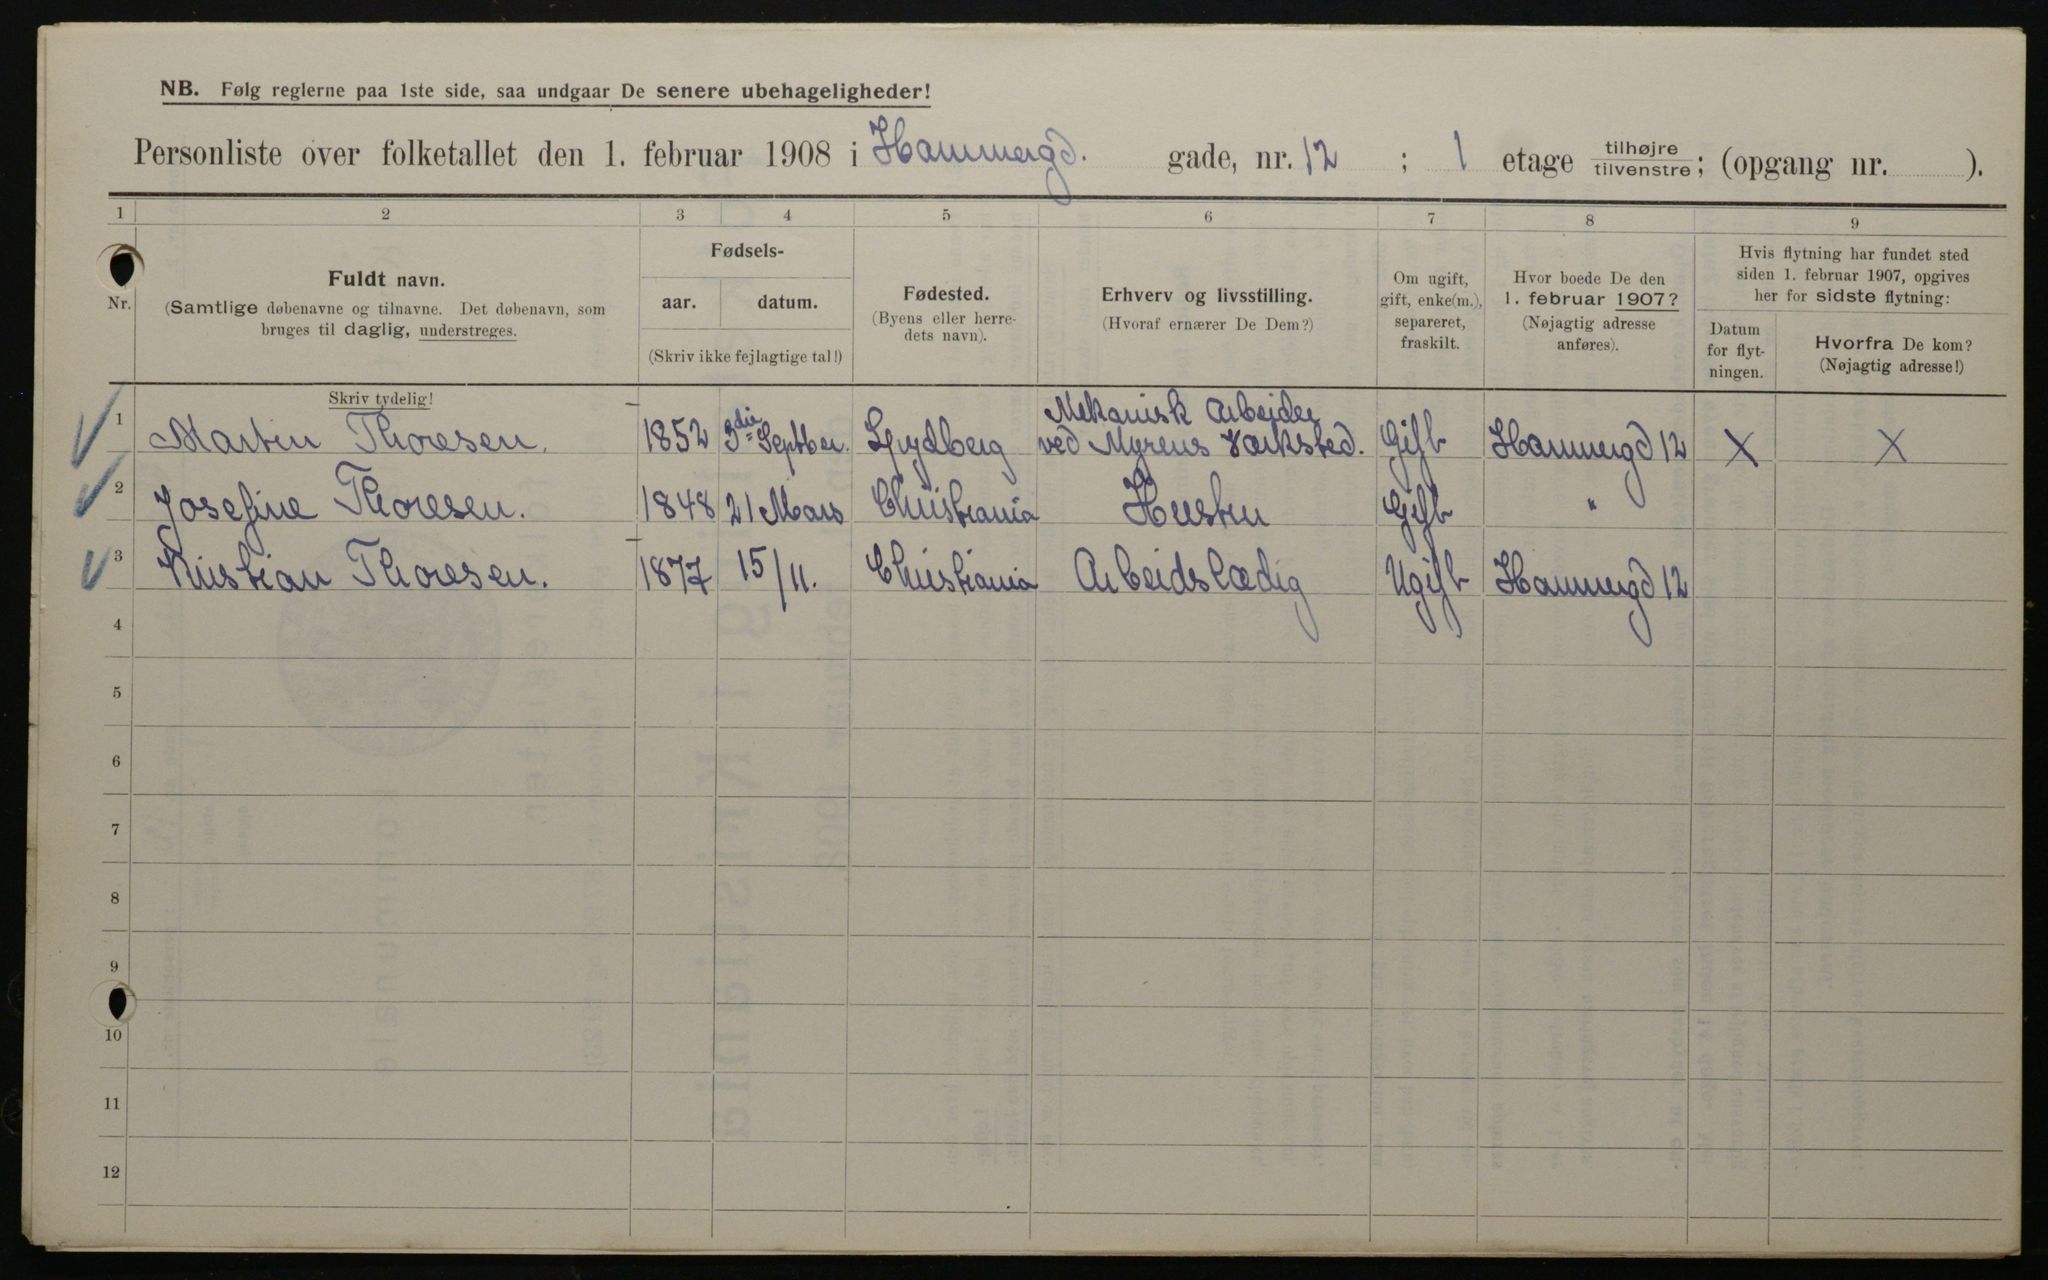 NB. Følg reglerne paa 1ste side, saa undgaar De senere ubehageligheder!
Personliste over folketallet den 1. februar 1908 i Hammergd. gade, nr. 12 ; 1 etage tilhøjre/tilvenstre; (opgang nr. ).
1 2 3 4 5 6 7 8 9
Nr.
Fuldt navn.
(Samtlige døbenavne og tilnavne. Det døbenavn, som
bruges til daglig, understreges.
Skriv tydelig!
Fødsels-
aar. datum.
(Skriv ikke fejlagtige tal!)
Fødested.
(Byens eller herre-
dets navn).
Erhverv og livsstilling.
(Hvoraf ernærer De Dem?)
Om ugift,
gift, enke(m.),
separeret,
fraskilt.
Hvor boede De den
1. februar 1907?
(Nøjagtig adresse
anføres).
Hvis flytning har fundet sted
siden 1. februar 1907, opgives
her for sidste flytning:
Datum
for flyt-
ningen.
Hvorfra De kom?
(Nøjagtig adresse!)
1 Martin Thoresen. 1852 3die Septber. Spydberg Mekanisk Arbeider
ved Myrens Værksted. Gift Hammergd 12 X X
2 Josefine Thoresen. 1848 21 Mars Christiania Hustru Gift "
3 Kristian Thoresen. 1877 15/11. Christiania Arbeidslædig Ugift Hammergd 12
4
5
6
7
8
9
10
11
12